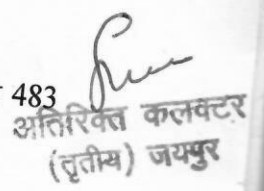 483
अतिरिक्त कलक्टर
(तृतीय) जयपुर